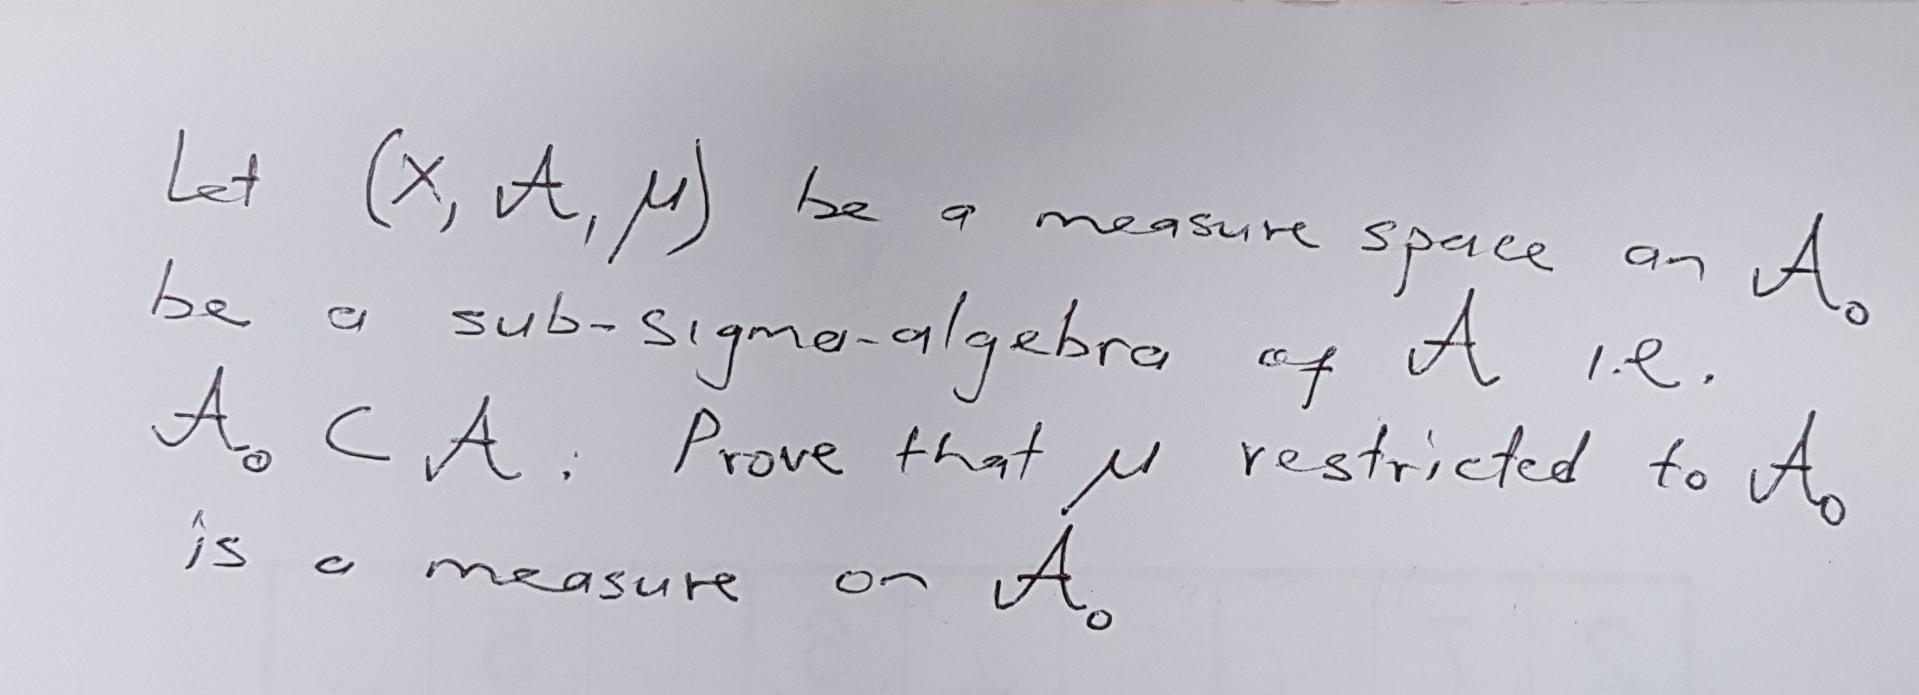 Let (X, 𝒜, μ) be a measure space an 𝒜₀
be a sub-sigma-algebra of 𝒜 i.e.
𝒜₀ ⊂ 𝒜. Prove that μ restricted to 𝒜₀
is a measure on 𝒜₀